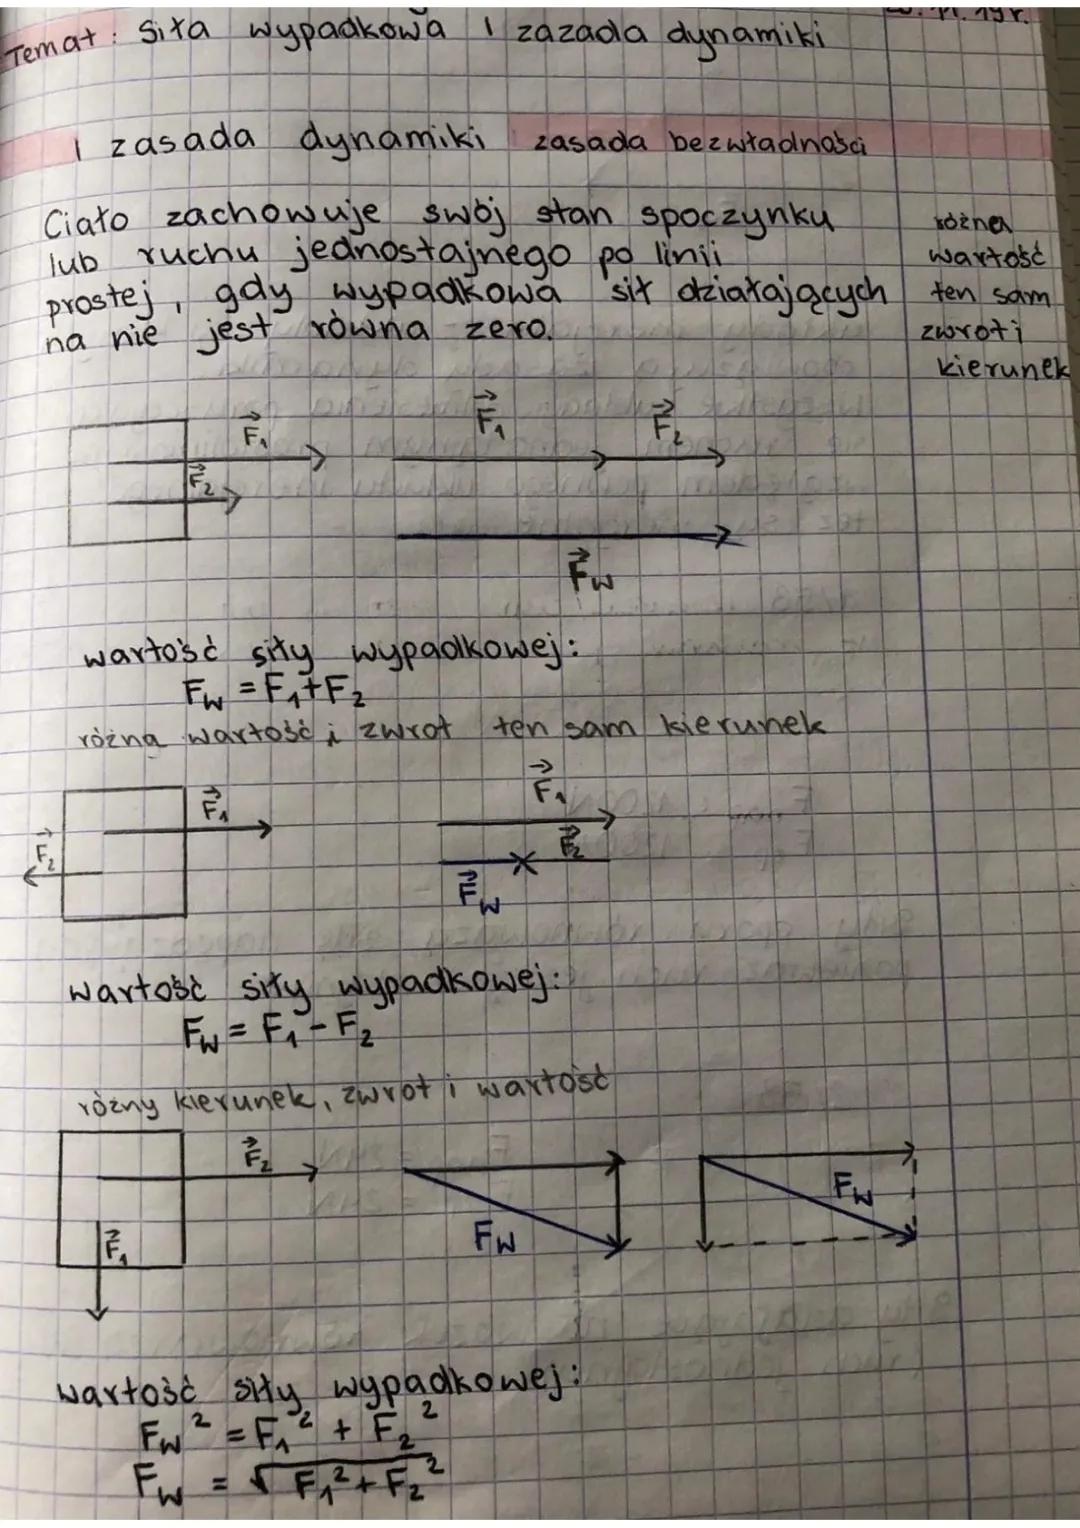 Temat: Siła wypadkowa I zazada dynamiki
I zasada dynamiki zasada bezwładności
Ciało zachowuje swój stan spoczynku
lub ruchu jednostajnego po linii
prostej, gdy wypadkowa sił działających
na nie jest równa zero.
różna
wartość
ten sam
zwrot i
kierunek
F₁
F₂
F₁
F₂
Fw
wartość siły wypadkowej:
Fw = F₁+F₂
różna wartość i zwrot ten sam kierunek
F₁
F₂
F₁
F₂
Fw
wartość siły wypadkowej:
Fw = F₁ - F₂
różny kierunek, zwrot i wartość
F₂
F₁
Fw
Fw
wartość siły wypadkowej:
Fw² = F₁² + F₂²
Fw = √F₁² + F₂²